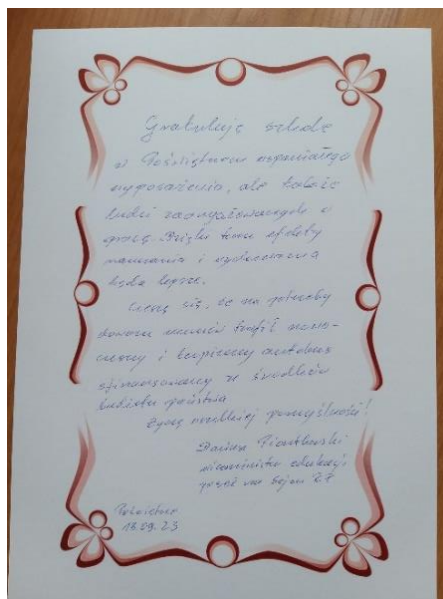 Gratuluję szkole
w Poświętnem wspaniałego
wyposażenia, ale także
ludzi zaangażowanych w
pracę. Dzięki temu efekty
nauczania i wychowania
będą lepsze.
Cieszę się, że na potrzeby
dowozu uczniów trafił nowo-
czesny i bezpieczny autobus
sfinansowany ze środków
budżetu państwa
Życzę wszelkiej pomyślności!
Dariusz Piontkowski
wiceminister edukacji
poseł na Sejm RP
Poświętne
18.09.23